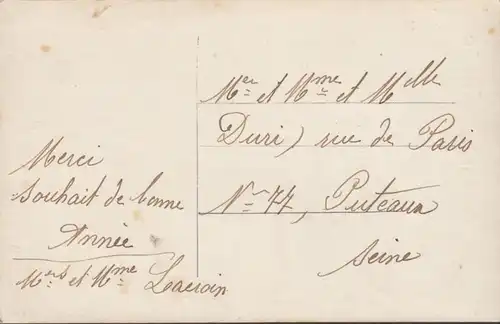 Merci
souhait de bonne
Année
Mers et Mme Lacroin
Mer et Mme et Melle
Duri) rue de Paris
No 77, Puteaux
Seine